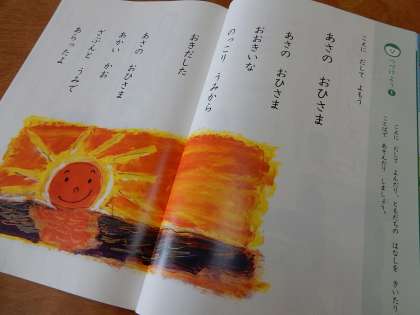 つづけよう 1
こえに だして よんだり、ともだちの はなしを きいたり
ことばで あそんだり しましょう。
こえに だして よもう
あさの おひさま
あさの おひさま
おおきいな
のっこり うみから
おきだした
あさの おひさま
あかい かお
ざぶんと うみで
あらったよ